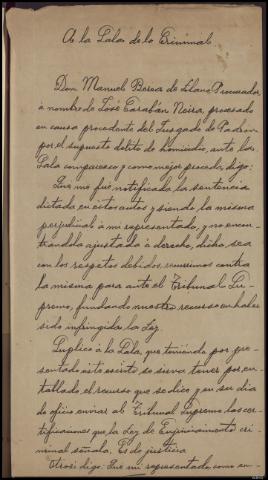 A la Sala de lo Criminal
Don Manuel Berea de Llano Procurador,
a nombre de José Carabán Neira, procesado
en causa procedente del Juzgado de Padron
por el supuesto delito de homicidio, ante la
Sala comparezco y como mejor proceda, digo:
Que me fué notificada la sentencia
dictada en estos autos y siendo la misma
perjudicial á mi representado, y no encon-
trándola ajustada á derecho, dicho sea
con los respetos debidos, recurrimos contra
la misma para ante el Tribunal Su-
premo, fundando nuestro recurso en haber
sido infringida la Ley.
Suplico á la Sala, que teniendo por pre-
sentado este escrito se sirva tener por en-
tablado el recurso que se dice y en su dia
de oficio enviar al Tribunal Supremo las cer-
tificaciones que la Ley de Enjuiciamiento cri-
minal señala. Es de justicia
Otrosi digo: Que mi representado como en-